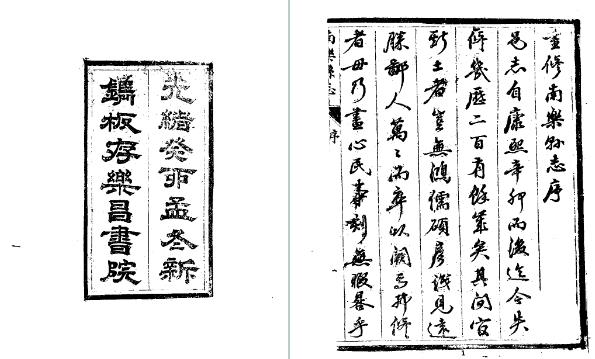 光緒癸卯孟冬新
鐫板存樂昌書院
重修南樂縣志序
邑志自康熙辛卯而後迄今失
修幾歷二百有餘歲矣其間官
斯土者豈無鴻儒碩彥識見遠
勝鄙人萬〻而卒以闕焉弗修
者毋乃盡心民事刻無暇晷乎
南樂縣志
序